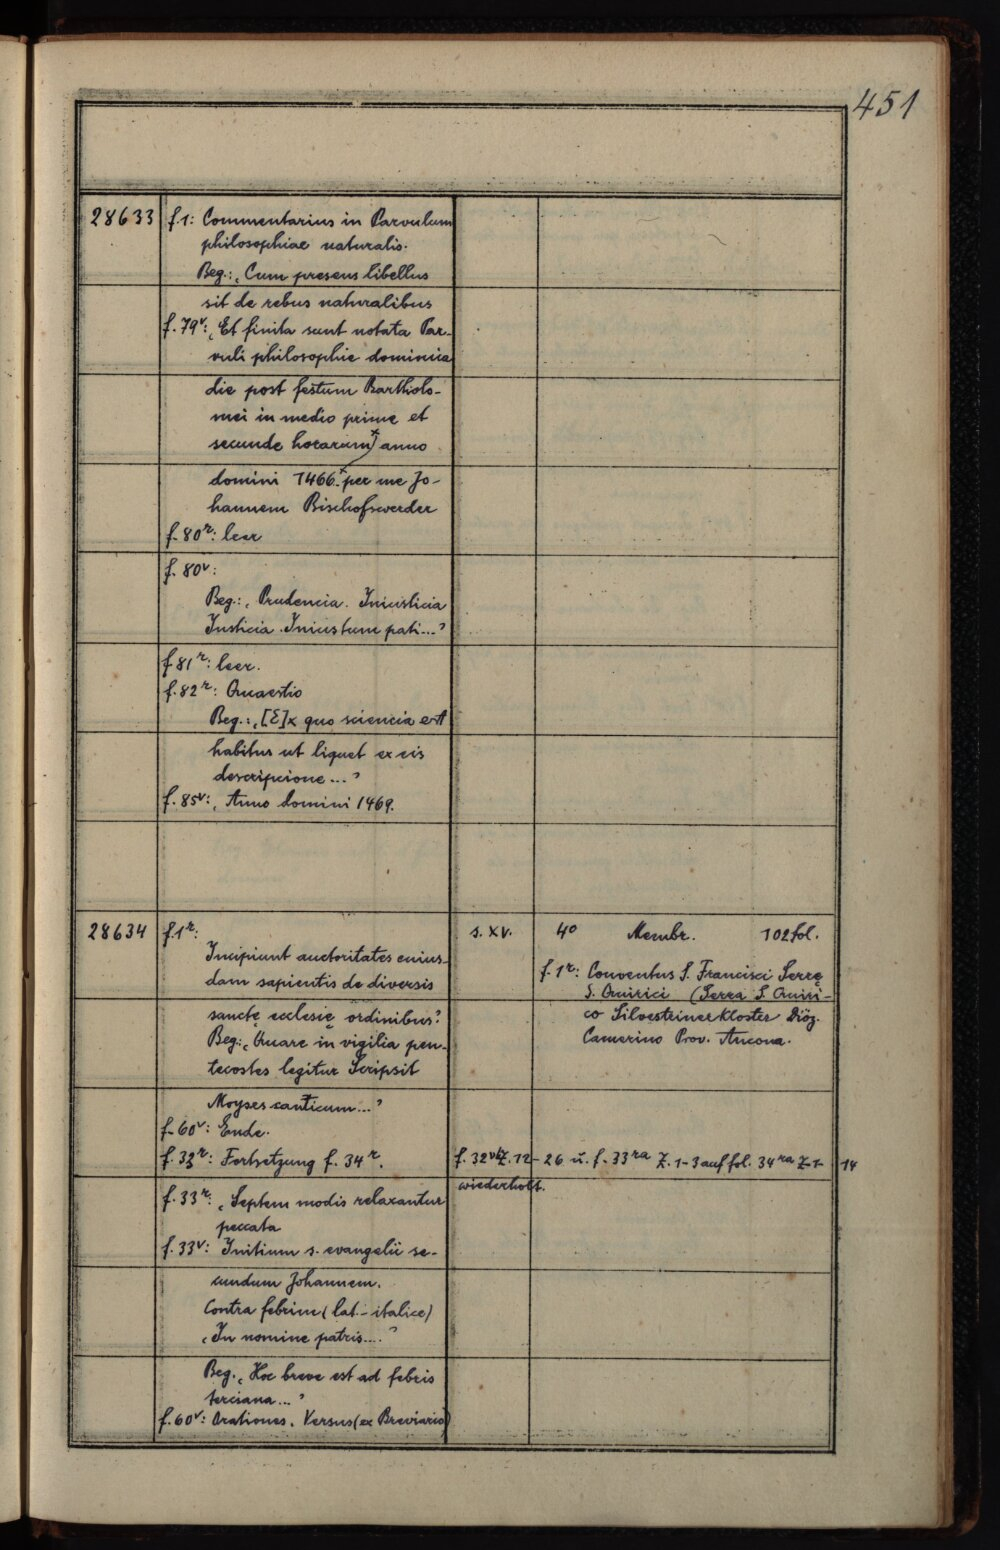 451
28633 f.1: Commentarius in Parvulum
philosophiae naturalis.
Beg.: ‚Cum presens libellus
sit de rebus naturalibus
f. 79v: ‚Et finita sunt notata Par-
vuli philosophie dominica
die post festum Bartholo-
mei in medio prime et
secunde horarum) anno
domini 1466. per me Jo-
hannem Bischofswerder
f. 80r: leer
f. 80v:
Beg.: ‚Prudencia. Iniusticia
Justicia. Iniustum pati...’
f 81r: leer.
f. 82r: Quaestio
Beg.: ‚[E]x quo sciencia est
habitus ut liquet ex eis
descripcione...’
f. 85v: ‚Anno domini 1469.
28634 f.1r: s. XV. 4o Membr. 102 fol.
Incipiunt auctoritates cuius-
dam sapientis de diversis
sanctę ecclesię ordinibus’
Beg.: ‚Quare in vigilia pen-
tecostes legitur Scripsit
Moyses canticum...’
f. 60v: Ende.
f. 32r: Fortsetzung f. 34r.
f. 33r: ‚Septem modis relaxantur
peccata
f. 33v: Initium s. evangelii se-
cundum Johannem.
Contra febrim (lat.-italice)
‚In nomine patris....’
Beg. ‚Hoc breve est ad febris
terciana...’
f. 60v: Orationes. Versus (ex Breviario)
f. 1r: Conventus S. Francisci Serrę
S. Quirici (Serra S. Quiri-
co Silvestrinerkloster Diöz.
Camerino Prov. Ancona.
f. 32vb Z. 12-26 u. f. 33ra Z. 1-3 auf fol. 34ra Z. 1-14
wiederholt.